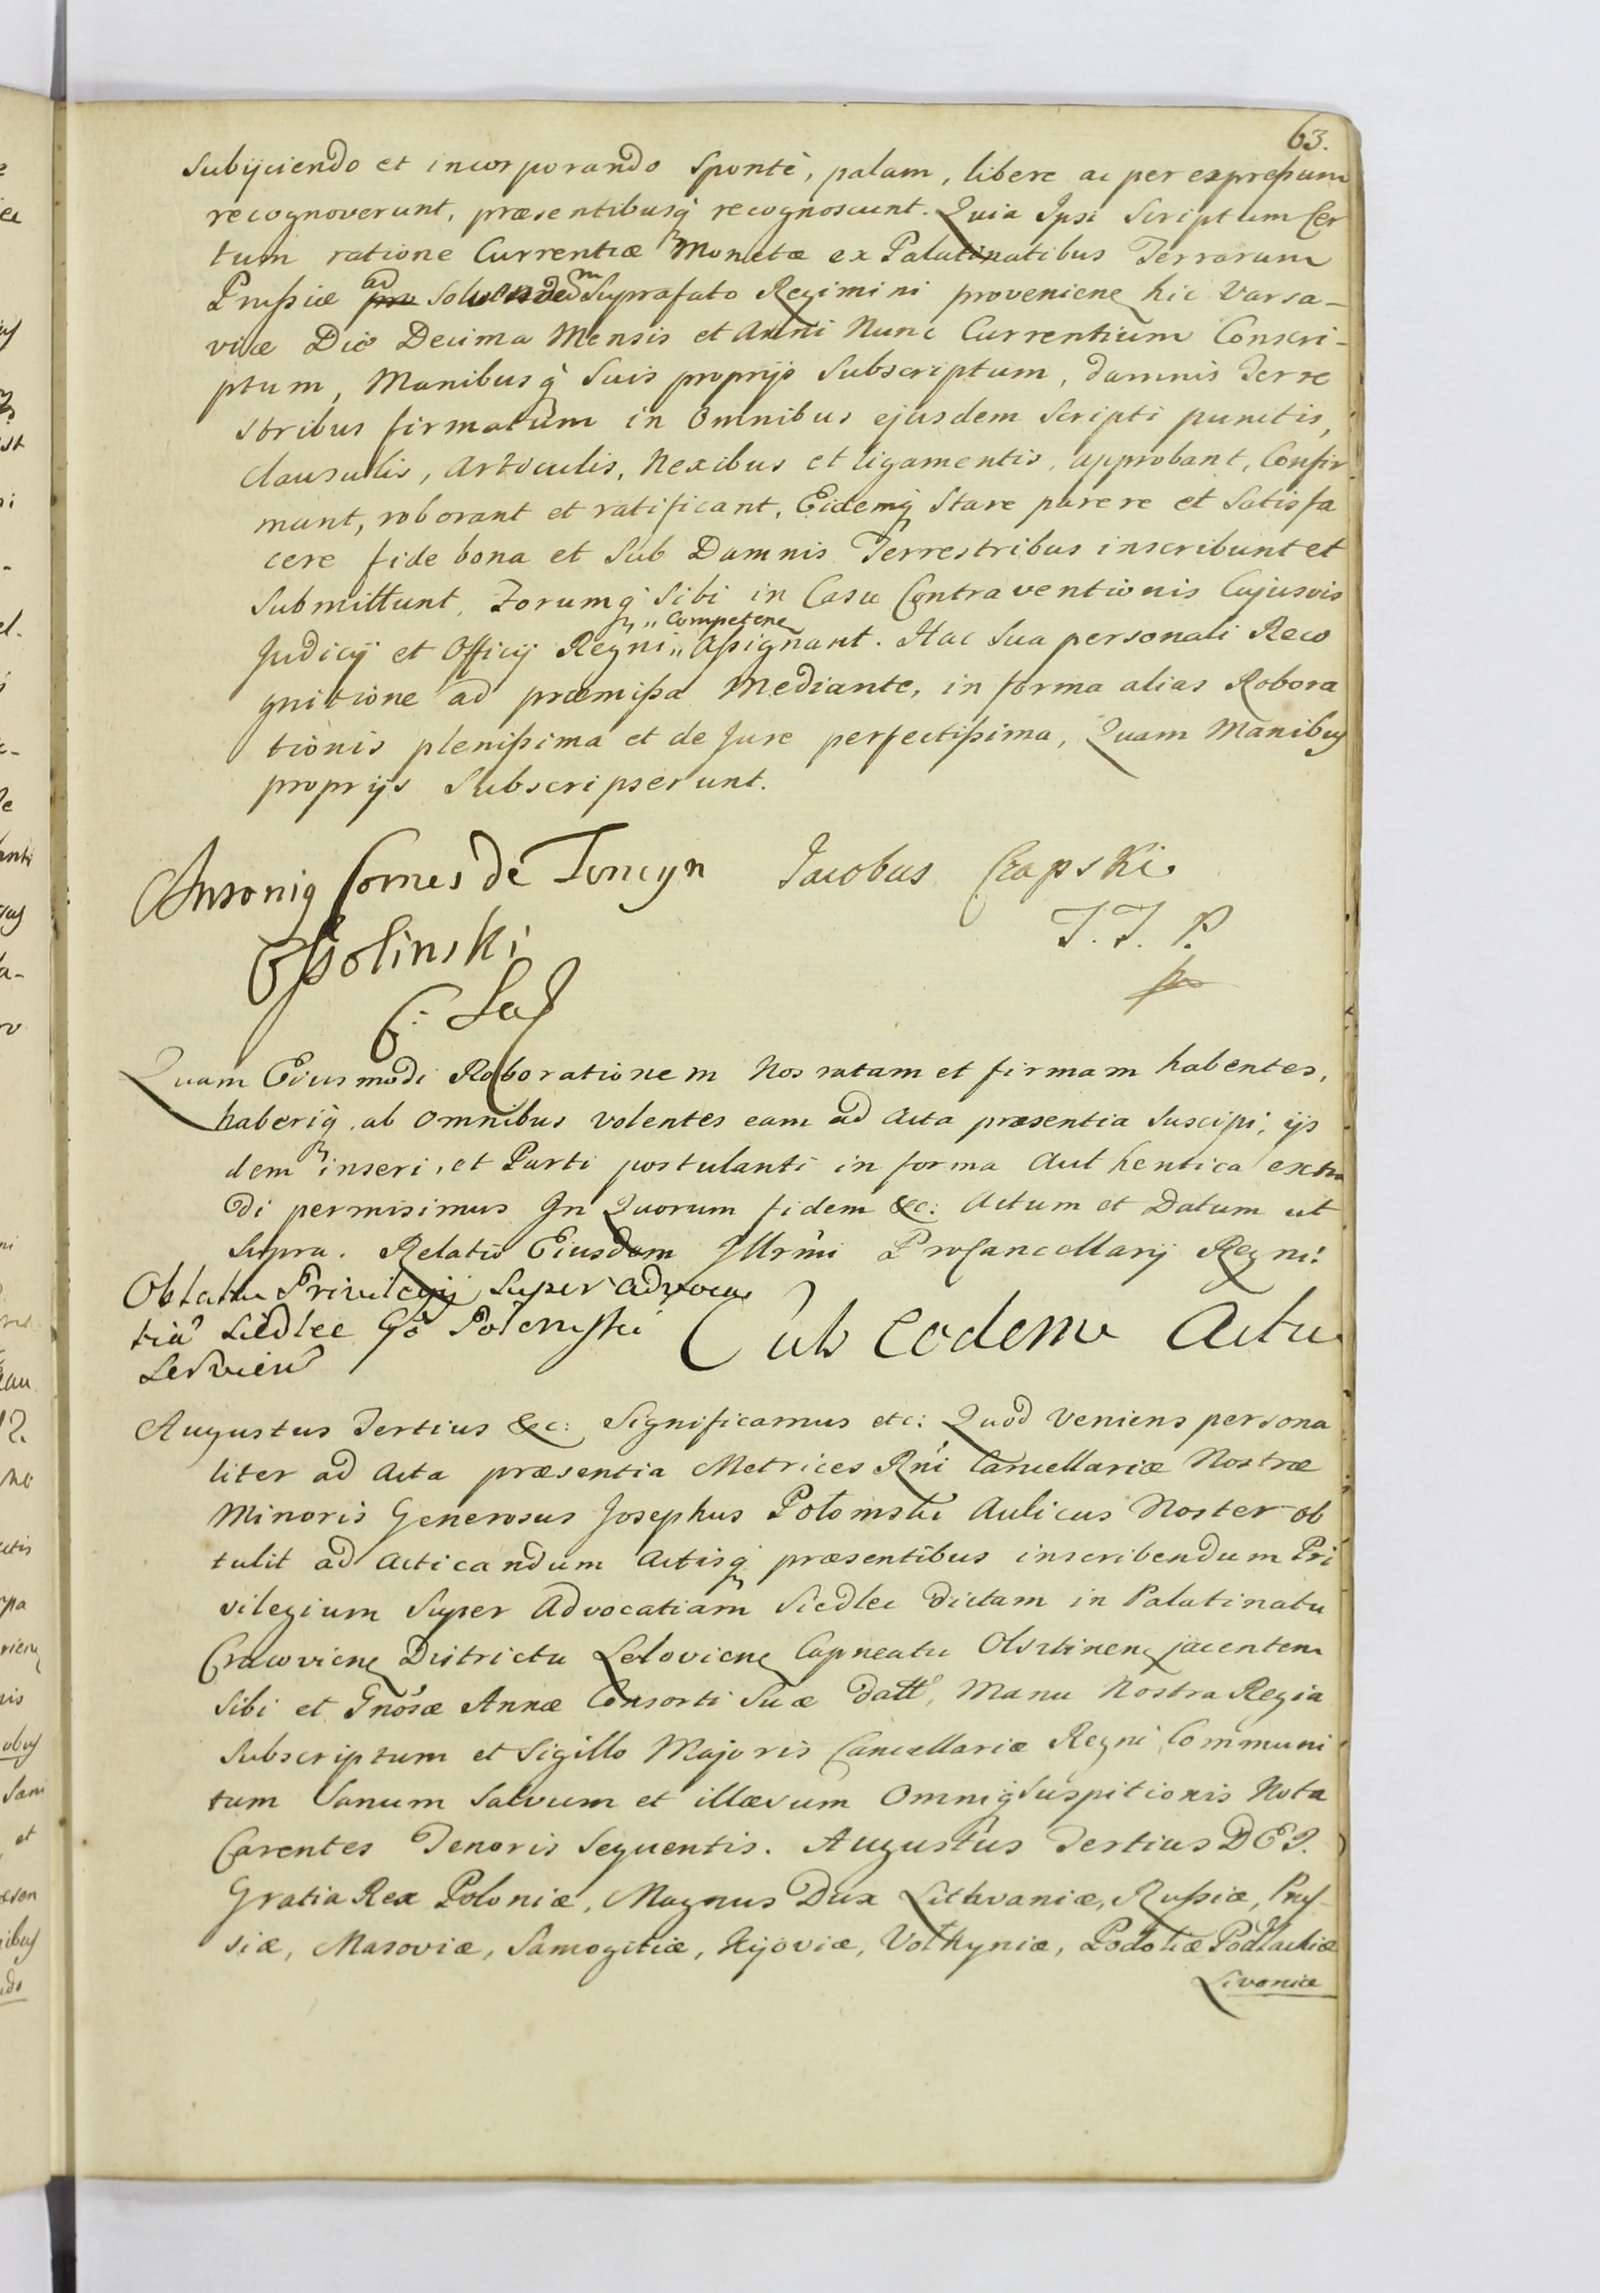 63.
Subijciendo et incorporando Sponte, palam, libere ac per expreßum
recognoverunt, præsentibusq recognoscunt. Quia Ipsi Scriptum Cer
tum ratione Currentiæ Monetæ ex Palatinatibus Terrarum
Prußiæ ad Solvendum Suprafato Regimini provenien hic Varsa-
viæ Die Decima Mensis et Anni Nunc Currentium Conscri-
ptum, Manibusq Suis proprijs Subscriptum, damnis Terre
stribus firmatum in Omnibus ejusdem Scripti punctis,
Clausulis, Articulis, Nexibus et ligamentis, approbant, Confir
mant, roborant et ratificant, Eidemq Stare parere et Satisfa
cere fide bona et Sub Damnis Terrestribus inscribunt et
Submittunt, Forumq Sibi in Casu Contraventionis Cujusvis
Judicij et Officij Regni " Competen " Aßignant. Hac Sua personali Reco
gnitione ad præmißa Mediante, in forma alias Robora
tionis plenißima et de Jure perfectißima, Quam Manibus
proprijs Subscripserunt.
Antonius Comes de Tenczyn Jacobus Czapski
Oßolinski T. T. P.
Quam Eiusmodi Roborationem Nos ratam et firmam habentes,
haberiq ab Omnibus volentes eam ad Acta præsentia Suscipi, ijs
dem inseri, et Parti postulanti in forma Authentica extra
di permisimus In Quorum fidem &c: Actum et Datum ut
Supra. Relatio Eiusdem Illrmi ProCancellarij Regni.
Oblata Privilegij Super Advoca
tia Siedlec Go Potomski
Servien
Sub eodem Actu
Augustus Tertius &c: Significamus etc: Quod Veniens persona
liter ad Acta præsentia Metrices Rni Cancellariæ Nostræ
Minoris Generosus Josephus Potomski Aulicus Noster ob
tulit ad Acticandum Actisq præsentibus inscribendum Pri
vilegium Super Advocatiam Siedlec dictam in Palatinatu
Cracovien Districtu Lelovien Capneatu Olsztinen jacentem
Sibi et Gnosæ Annæ Consorti Suæ datt, Manu Nostra Regia
Subscriptum et Sigillo Majoris Cancellariæ Regni Communi
tum Sanum Salvum et illæsum Omniq Suspitionis Nota
Carentes Tenoris Sequentis. Augustus Tertius DEI.
Gratia Rex Poloniæ, Magnus Dux Lithvaniæ, Rußiæ, Prus-
siæ, Masoviæ, Samogitiæ, Kijoviæ, Volhyniæ, Podoliæ Podlachiæ
Livoniæ